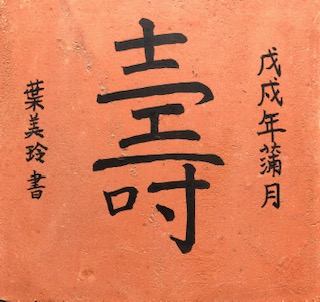 戊戌年蒲月
壽
葉美玲書